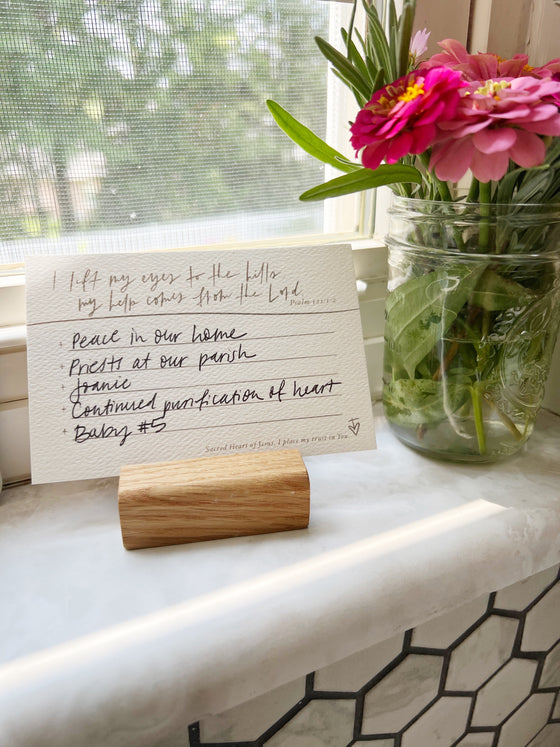 I lift my eyes to the hills
my help comes from the Lord.
Psalm 121:1-2
Peace in our home
Priests at our parish
Joanie
Continued purification of heart
Baby #5
Sacred Heart of Jesus, I place my trust in You.